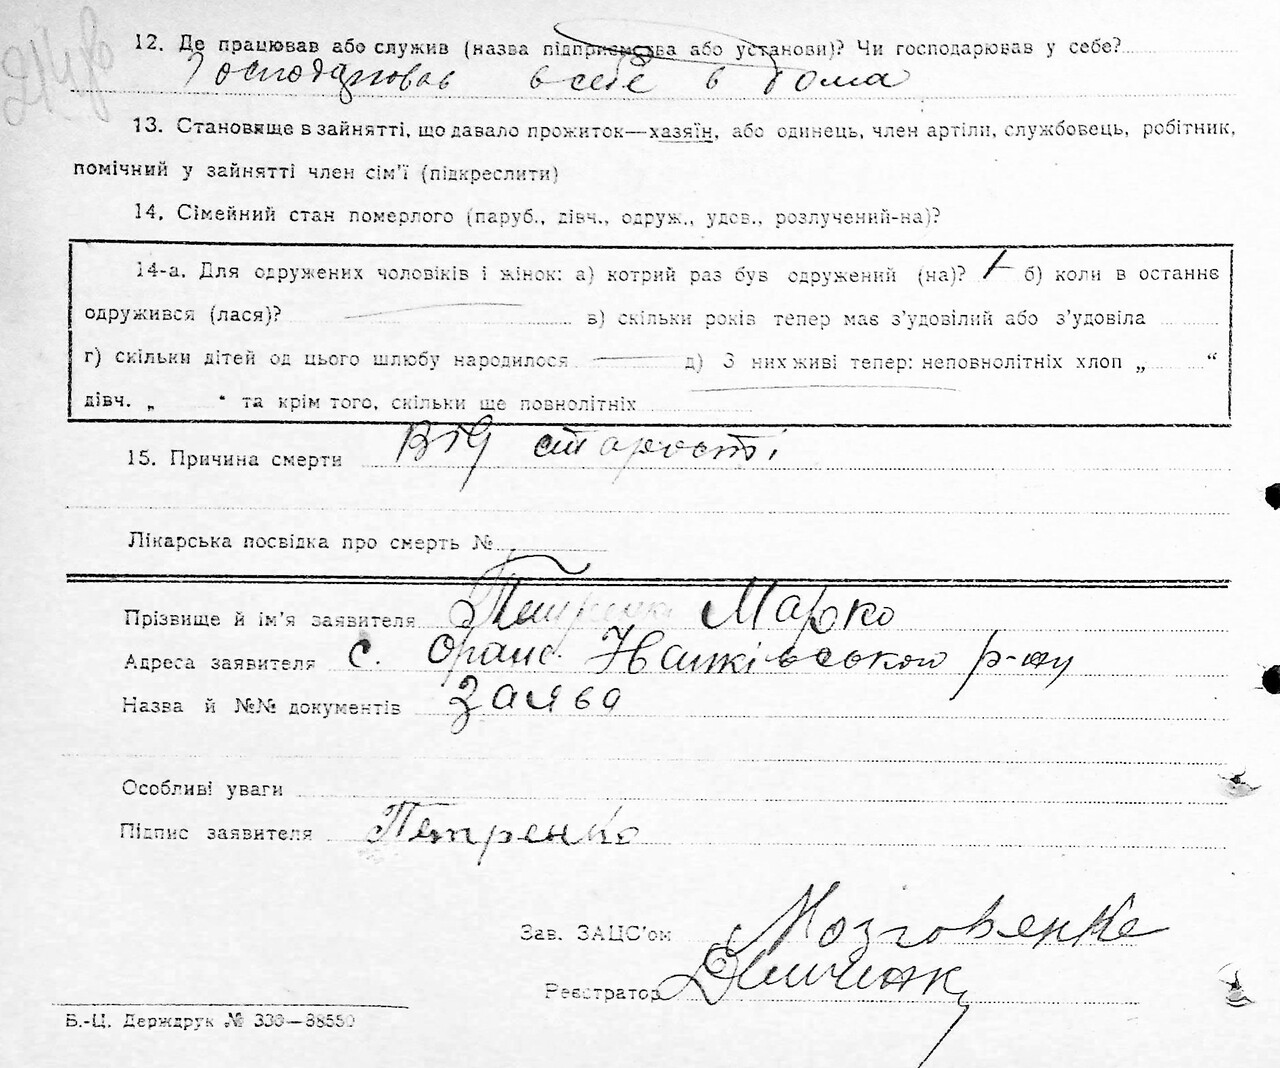 12. Де працював або служив (назва підприємства або установи)? Чи господарював у себе?
Господарював в себе в дома
13. Становище в зайнятті, що давало прожиток—хазяїн, або одинець, член артілі, службовець, робітник,
помічний у зайнятті член сім'ї (підкреслити)
14. Сімейний стан померлого (паруб., дівч., одруж., удов., розлучений-на)?
14-а. Для одружених чоловіків і жінок: а) котрий раз був одружений (на)? б) коли в останнє
одружився (лася)? в) скільки років тепер має з'удовілий або з'удовіла
г) скільки дітей од цього шлюбу народилося д) З них живі тепер: неповнолітніх хлоп „ “
дівч. „ “ та крім того, скільки ще повнолітніх
15. Причина смерти Від старості
Лікарська посвідка про смерть №
Прізвище й ім'я заявителя Петренко Марко
Адреса заявителя с. р-ну
Назва й №№ документів Заява
Особливі уваги
Підпис заявителя Петренко
Зав. ЗАЦС'ом Мозговенко
Реєстратор
Б.-Ц. Держдрук № 330—38550